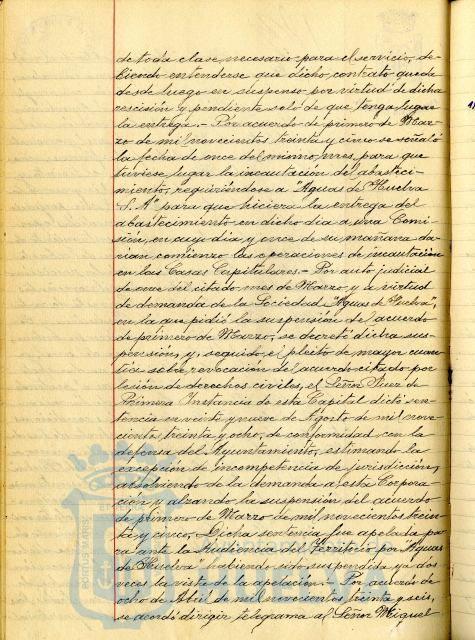 de toda clase, necesario para el servicio, de-
biendo entenderse que dicho contrato queda
desde luego en suspenso por virtud de dicha
rescisión y pendiente solo de que tenga lugar
la entrega.- Por acuerdo de primero de Mar-
zo de mil novecientos treinta y cinco se señaló
la fecha de once del mismo mes, para que
tuviese lugar la incautación del abasteci-
miento, requiriéndose a "Aguas de Huelva
S. A" para que hiciera la entrega del
abastecimiento en dicho dia a una Comi-
sión, en cuyo dia y once de su mañana da-
rian comienzo las operaciones de incautación
en las Casas Capitulares.- Por auto judicial
de once del citado mes de Marzo y a virtud
de demanda de la Sociedad "Aguas de Huelva",
en la que pidió la suspensión de acuerdo
de primero de Marzo, se decretó dicha sus-
pensión, y, seguido el pleito de mayor cuan-
tia sobre revocación del acuerdo citado por
lesión de derechos civiles, el Señor Juez de
Primera Instancia de esta Capital dictó sen-
tencia en veinte y nueve de Agosto de mil nove-
cientos treinta y ocho, de conformidad con la
defensa del Ayuntamiento, estimando la
excepción de incompetencia de jurisdicción,
absolviendo de la demanda a esta Corpora-
ción y alzando la suspensión del acuerdo
de primero de Marzo de mil novecientos trein-
ta y cinco.- Dicha sentencia fue apelada pa-
ra ante la Audiencia del Territorio por "Aguas
de Huelva" habiendo sido suspendida ya dos
veces la vista de la apelación.- Por acuerdo de
ocho de Abril de mil novecientos treinta y seis,
se acordó dirigir telegrama al Señor Miguel